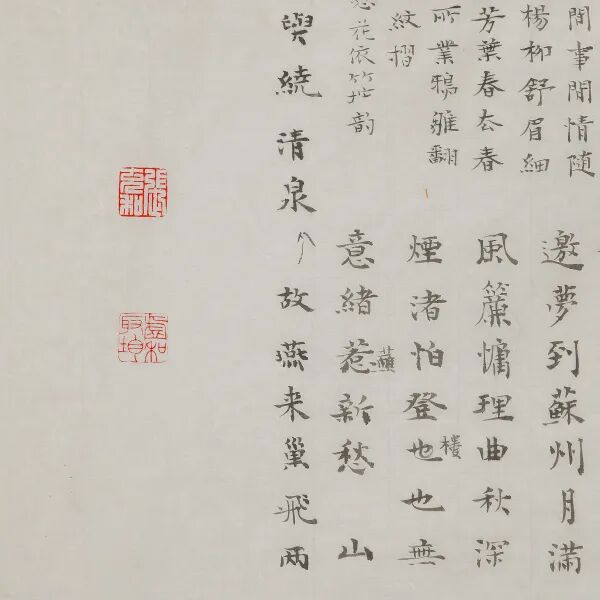 間事間情随
楊柳舒眉細
芳葉春去春
所業鴉雛翻
紋摺
花依竺韵
邀夢到蘇州月滿
風簾慵理曲秋深
煙渚怕登也樓也無
意緒惹蘸新愁山
與繞清泉
故燕来巢飛兩